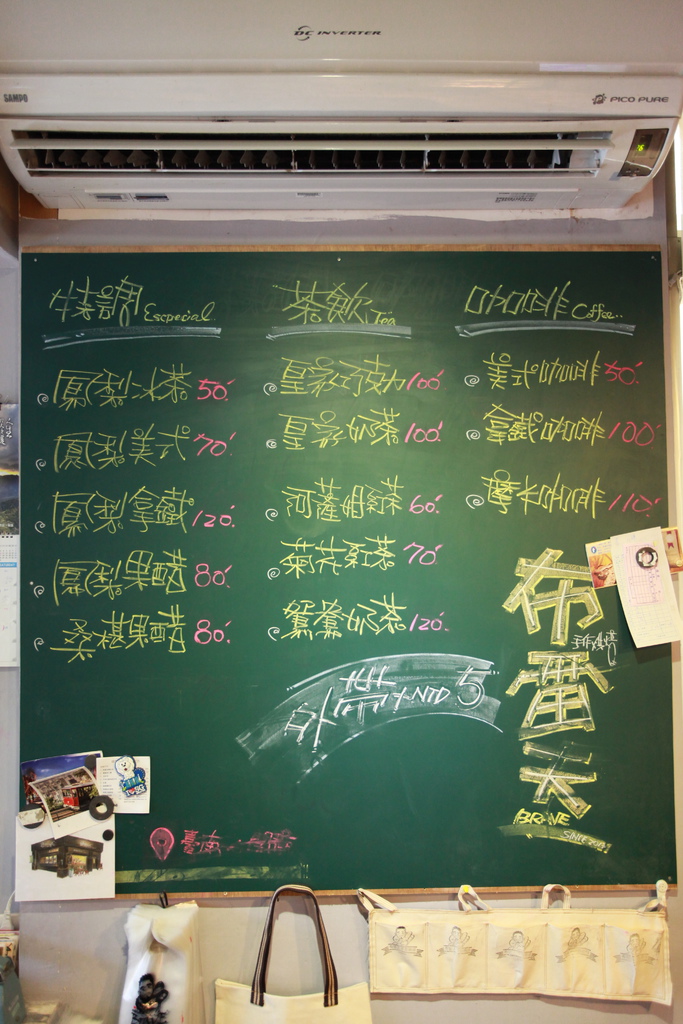 DC INVERTER
SAMPO
PICO PURE
特調 Escpecial
鳳梨冰茶 50
鳳梨美式 70
鳳梨拿鐵 120
鳳梨果醋 80
桑椹果醋 80
茶飲 Tea
皇家巧克力 100
皇家奶茶 100
阿薩姆紅茶 60
菊花紅茶 70
鴛鴦奶茶 120
咖啡 Coffee
美式咖啡 50
拿鐵咖啡 100
摩卡咖啡 110
外帶 -NTD 5
布雷夫
BRAVE
臺南